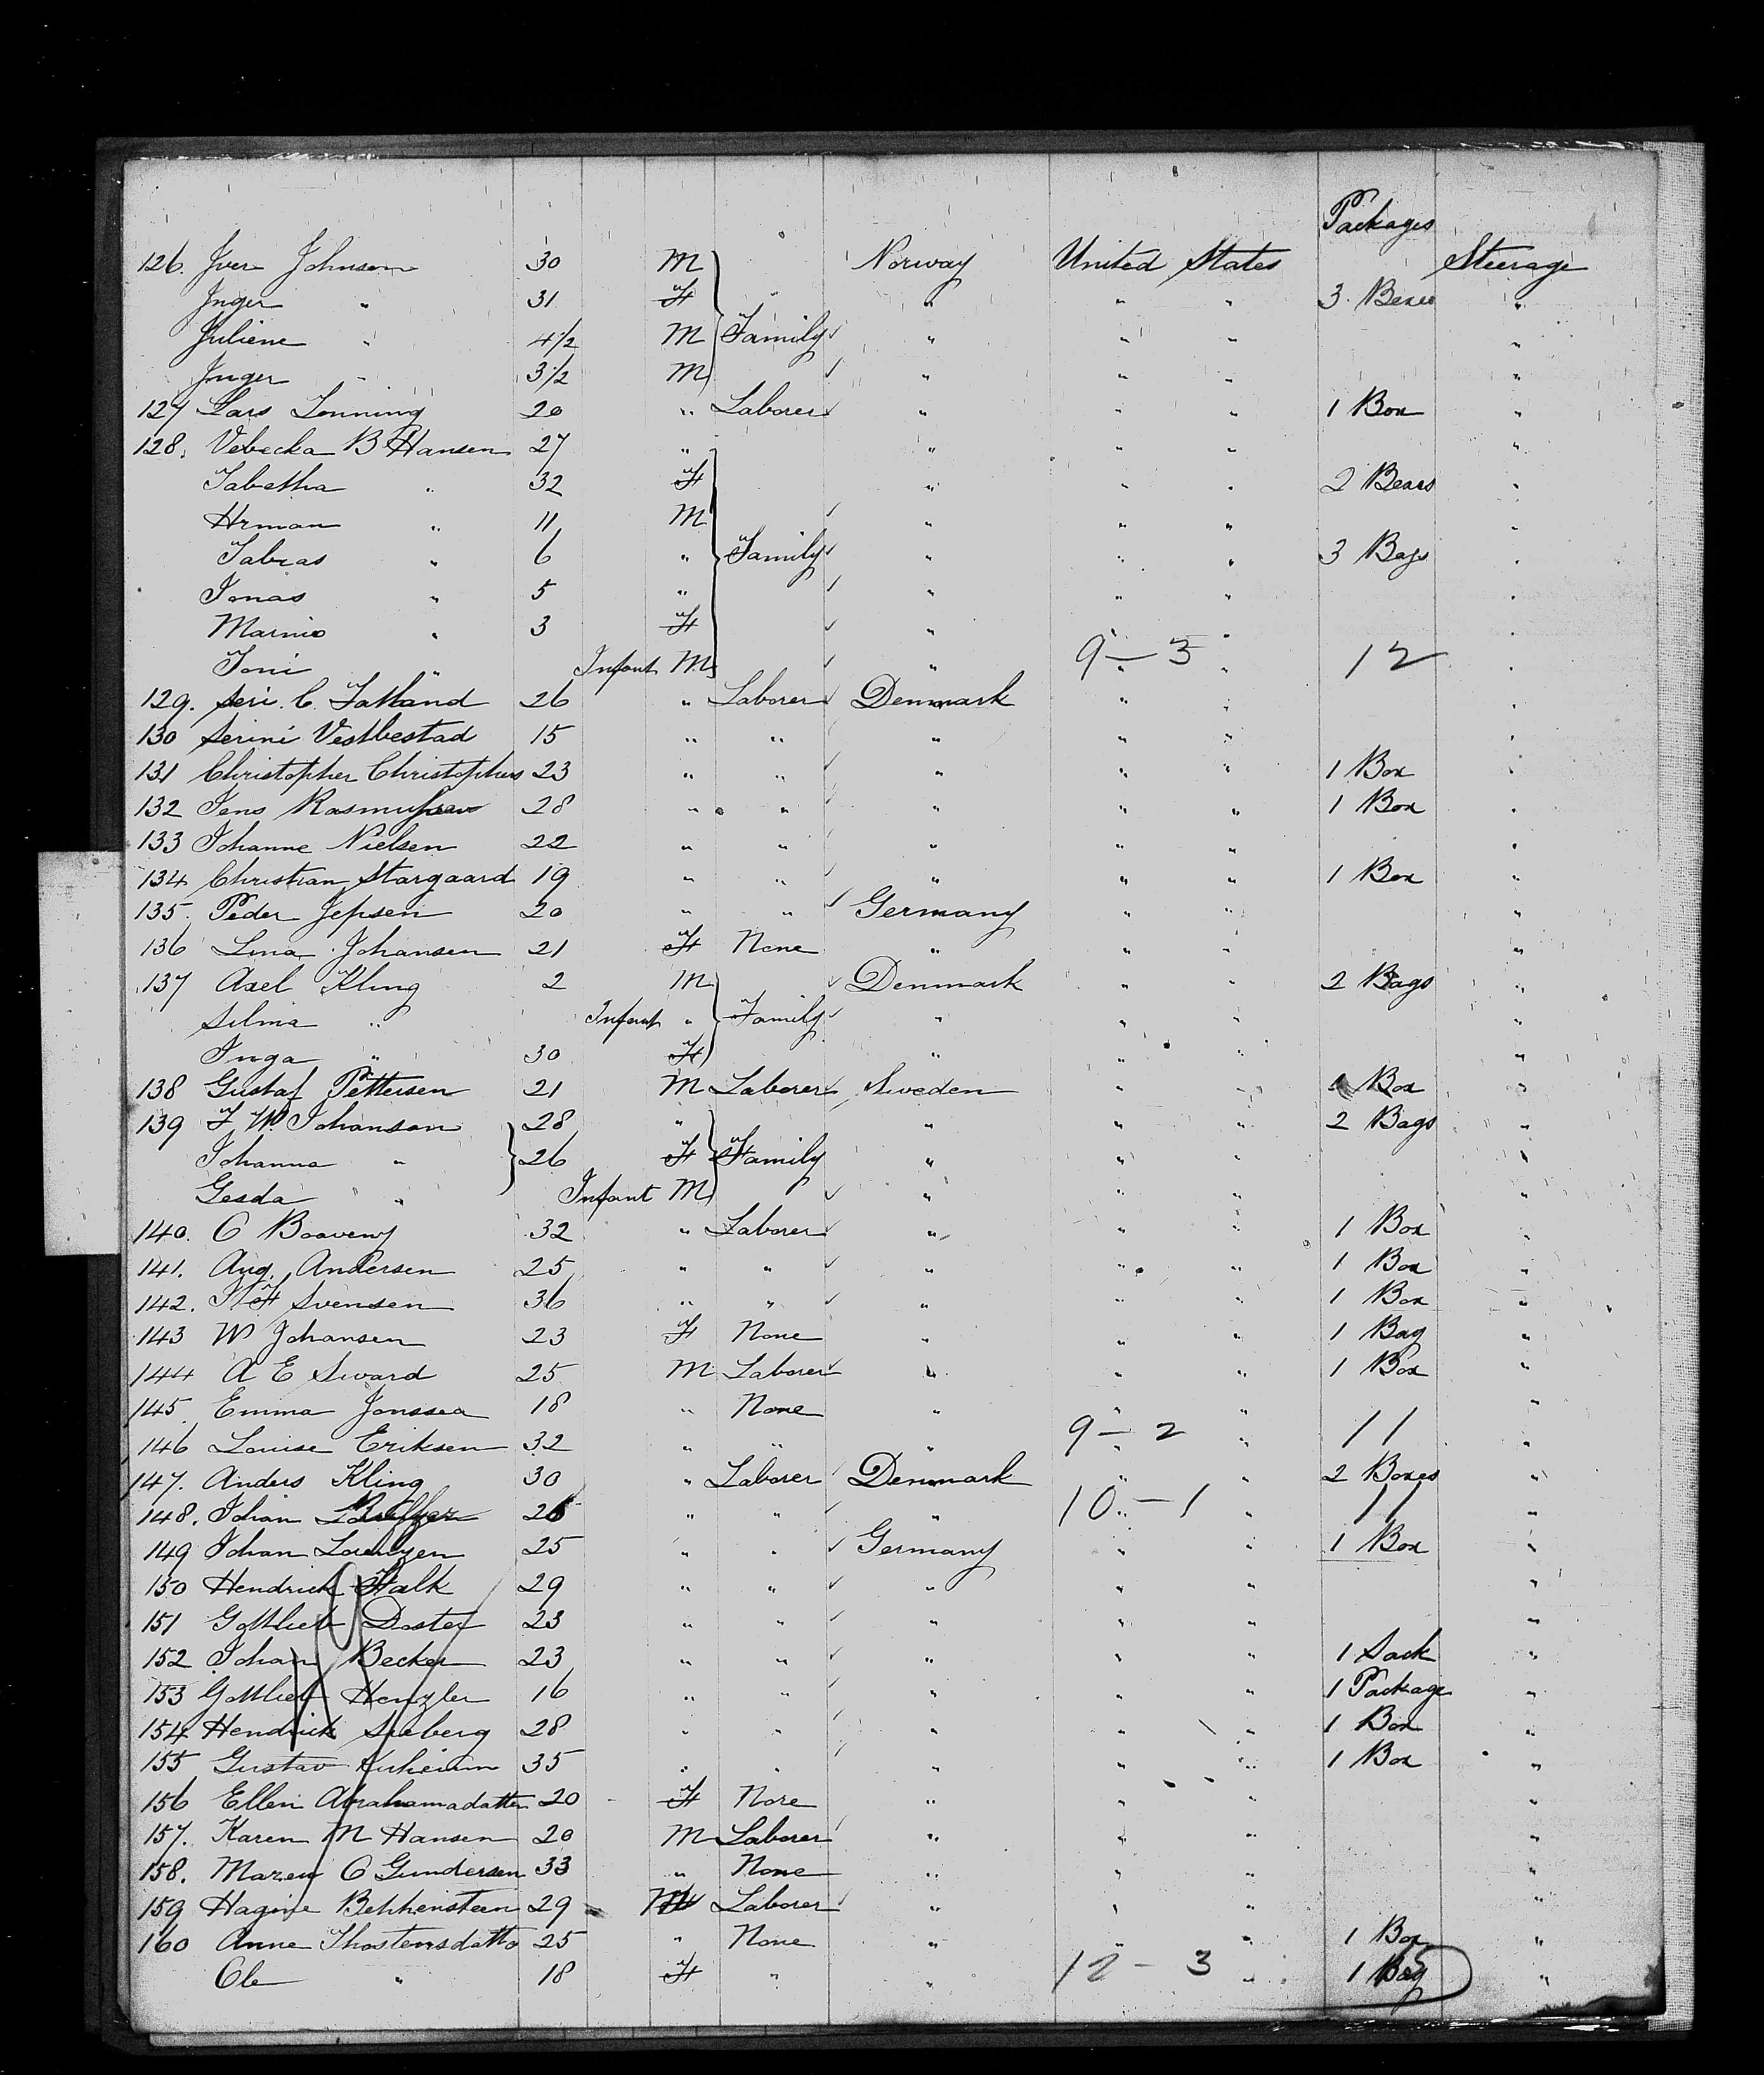 Packages
126. Iver Johnson 30 M Norway United States Steerage
Inger " 31 F " " " 3 Boxes "
Juliene " 4 1/2 M Family " " " "
Inger " 3 1/2 M " " " "
127 Lars Lonning 20 " Laborer " " " 1 Box "
128. Vebecka B Hansen 27 " " " " "
Tabetha " 32 F " " " 2 Boxes "
Hrman " 11 M " " " "
Tabias " 6 " Family " " " 3 Bags "
Jonas " 5 " " " " "
Marnie " 3 F " " " "
Toni " Infant M " 9 - 3 " " 12 "
129. Seri. C. Tatland 26 " Laborer Denmark " " "
130 Serine Vestbestad 15 " " " " " "
131 Christopher Christophers 23 " " " " " 1 Box "
132 Jens Rasmussen 28 " " " " " 1 Box "
133 Johanne Nielsen 22 " " " " " "
134 Christian Stargaard 19 " " " " " 1 Box "
135. Peder Jepsen 20 " " Germany " " "
136 Lina Johansen 21 F None " " " "
137 Axel Kling 2 M Denmark " " 2 Bags "
Selma " Infant " Family " " " "
Inga " 30 F " " " "
138 Gustaf Pettersen 21 M Laborer Sweden " " 1 Box "
139 F. W. Johanson 28 " " " " 2 Bags "
Johanna " 26 F Family " " " "
Gesda " Infant M " " " "
140. O 32 " Laborer " " " 1 Box "
141. Aug. Andersen 25 " " " " " 1 Box "
142. Svensen 36 " " " " " 1 Box "
143 W Johansen 23 F None " " " 1 Bag "
144 A E Sward 25 M Laborer " " " 1 Box "
145. Emma Jonssea 18 " None " " " "
146 Louise Eriksen 32 " " " 9 - 2 " " 11 "
147. Anders Kling 30 " Laborer Denmark " " 2 Boxes "
148. Johan 26 " " " 10 - 1 " " 11 "
149 Johan Lorenzen 25 " " Germany " " 1 Box "
150 Hendrick Falk 29 " " " " " "
151 Gottlieb Doster 23 " " " " " "
152 Johan Becker 23 " " " " " 1 Sack "
153 Gottlieb Henzler 16 " " " " " 1 Package "
154 Hendrick Seeberg 28 " " " " " 1 Box "
155 Gustav 35 " " " " " 1 Box "
156 Ellen Abrahamadatten 20 F None " " " "
157. Karen M Hansen 20 M Laborer " " " "
158. Maren O Gundersen 33 " None " " " "
159 Hagine Behhensteen 29 M Laborer " " " "
160 Anne Thostensdatto 25 " None " " " 1 Box "
Ole " 18 F " " 12 - 3 " 1 Bag "